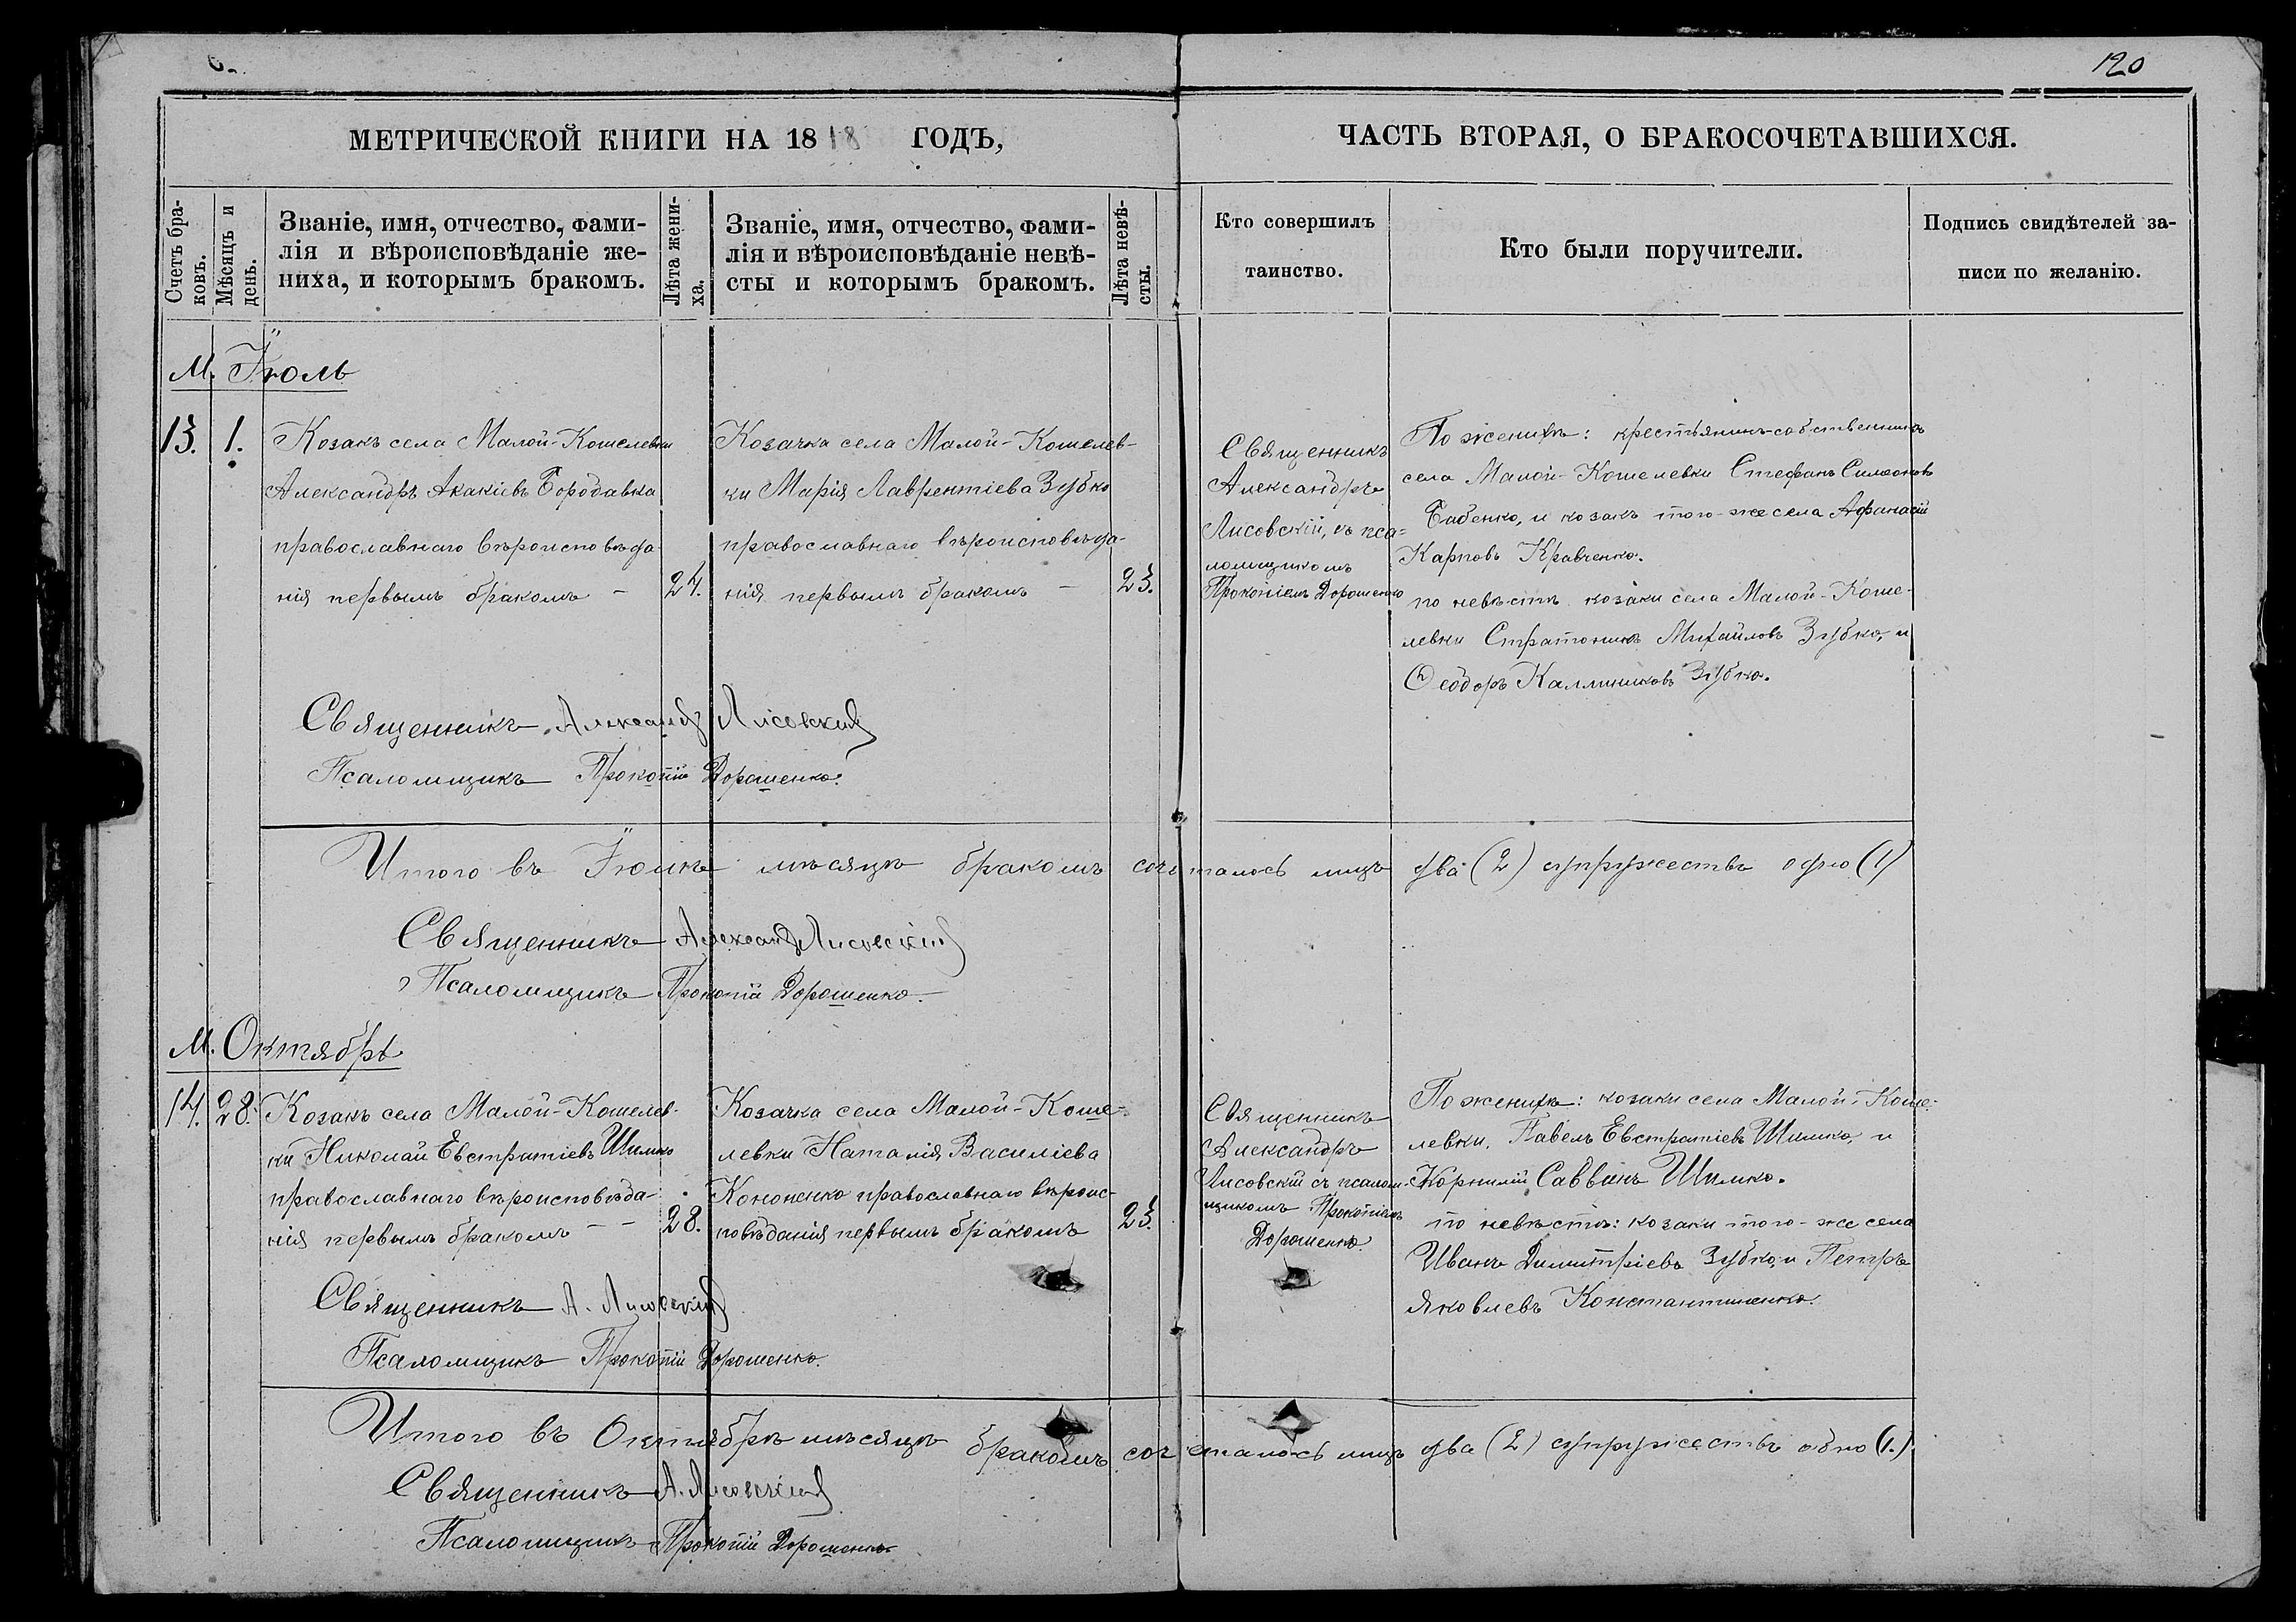 120
МЕТРИЧЕСКОЙ КНИГИ НА 18 18 ГОДЪ,
ЧАСТЬ ВТОРАЯ, О БРАКОСОЧЕТАВШИХСЯ.
Счетъ бра-
ковъ.
Мѣсяцъ и
день.
Званіе, имя, отчество, фами-
лія и вѣроисповѣданіе же-
ниха, и которымъ бракомъ.
Лѣта жени-
ха.
Званіе, имя, отчество, фами-
лія и вѣроисповѣданіе невѣ-
сты и которымъ бракомъ.
Лѣта невѣ-
сты.
Кто совершилъ
таинство.
Кто были поручители.
Подпись свидѣтелей за-
писи по желанію.
М. Іюль
13. 1.
Козакъ села Малой-Кошелевки
Александръ Акакіевъ Бородавка
православнаго вѣроисповѣда-
нія первымъ бракомъ –
24.
Козачка села Малой-Кошелев-
ки Марія Лаврентіева Зубко
православнаго вѣроисповѣда-
нія первымъ бракомъ –
23.
Священникъ
Александръ
Лисовскій, съ пса-
ломщикомъ
Прокопіемъ Дорошенко
По женихѣ: крестьянинъ-собственникъ
села Малой-Кошелевки Стефанъ Симеоновъ
Бабенко, и козакъ того-же села Афанасій
Карповъ Кравченко.
по невѣстѣ козаки села Малой-Коше-
левки Стратоникъ Михайловъ Зубко, и
Ѳеодоръ Каллиниковъ Зубко.
Священникъ Александръ Лисовскій
Псаломщикъ Прокопій Дорошенко.
Итого въ Іюлѣ мѣсяцѣ бракомъ сочеталось лицъ два (2) супружествъ одно (1)
Священникъ Александръ Лисовскій
Псаломщикъ Прокопій Дорошенко.
М. Октябрь
14. 28.
Козакъ села Малой-Кошелев-
ки Николай Евстратіевъ Шимко
православнаго вѣроисповѣда-
нія первымъ бракомъ – –
28.
Козачка села Малой-Коше-
левки Наталія Василіева
Кононенко православнаго вѣроис-
повѣданія первымъ бракомъ
23.
Священникъ
Александръ
Лисовскій съ псалом-
щикомъ Прокопіемъ
Дорошенко.
По женихѣ: козаки села Малой-Коше-
левки, Павелъ Евстратіевъ Шимко, и
Корнилій Саввинъ Шимко.
по невѣстѣ: козаки того-же села
Иванъ Димитріевъ Зубко, и Петръ
Яковлевъ Константиненко.
Священникъ А. Лисовскій
Псаломщикъ Прокопій Дорошенко.
Итого въ Октябрѣ мѣсяцѣ бракомъ сочеталось лицъ два (2) супружествъ одно (1.)
Священникъ А. Лисовскій
Псаломщикъ Прокопій Дорошенко